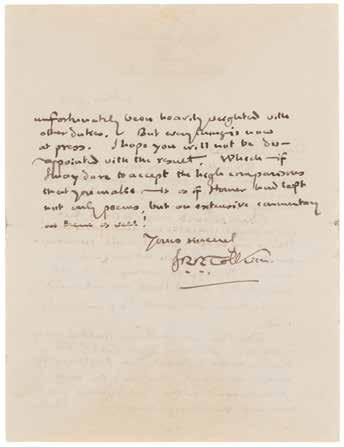 unfortunately been heavily weighted with
other duties. But everything is now
at press. I hope you will not be dis-
appointed with the result. Which – if
I may dare to accept the high comparisons
that you make – is as if Homer had left
not only poems, but an extensive commentary
on them as well!
Yours sincerely
JRRTolkien